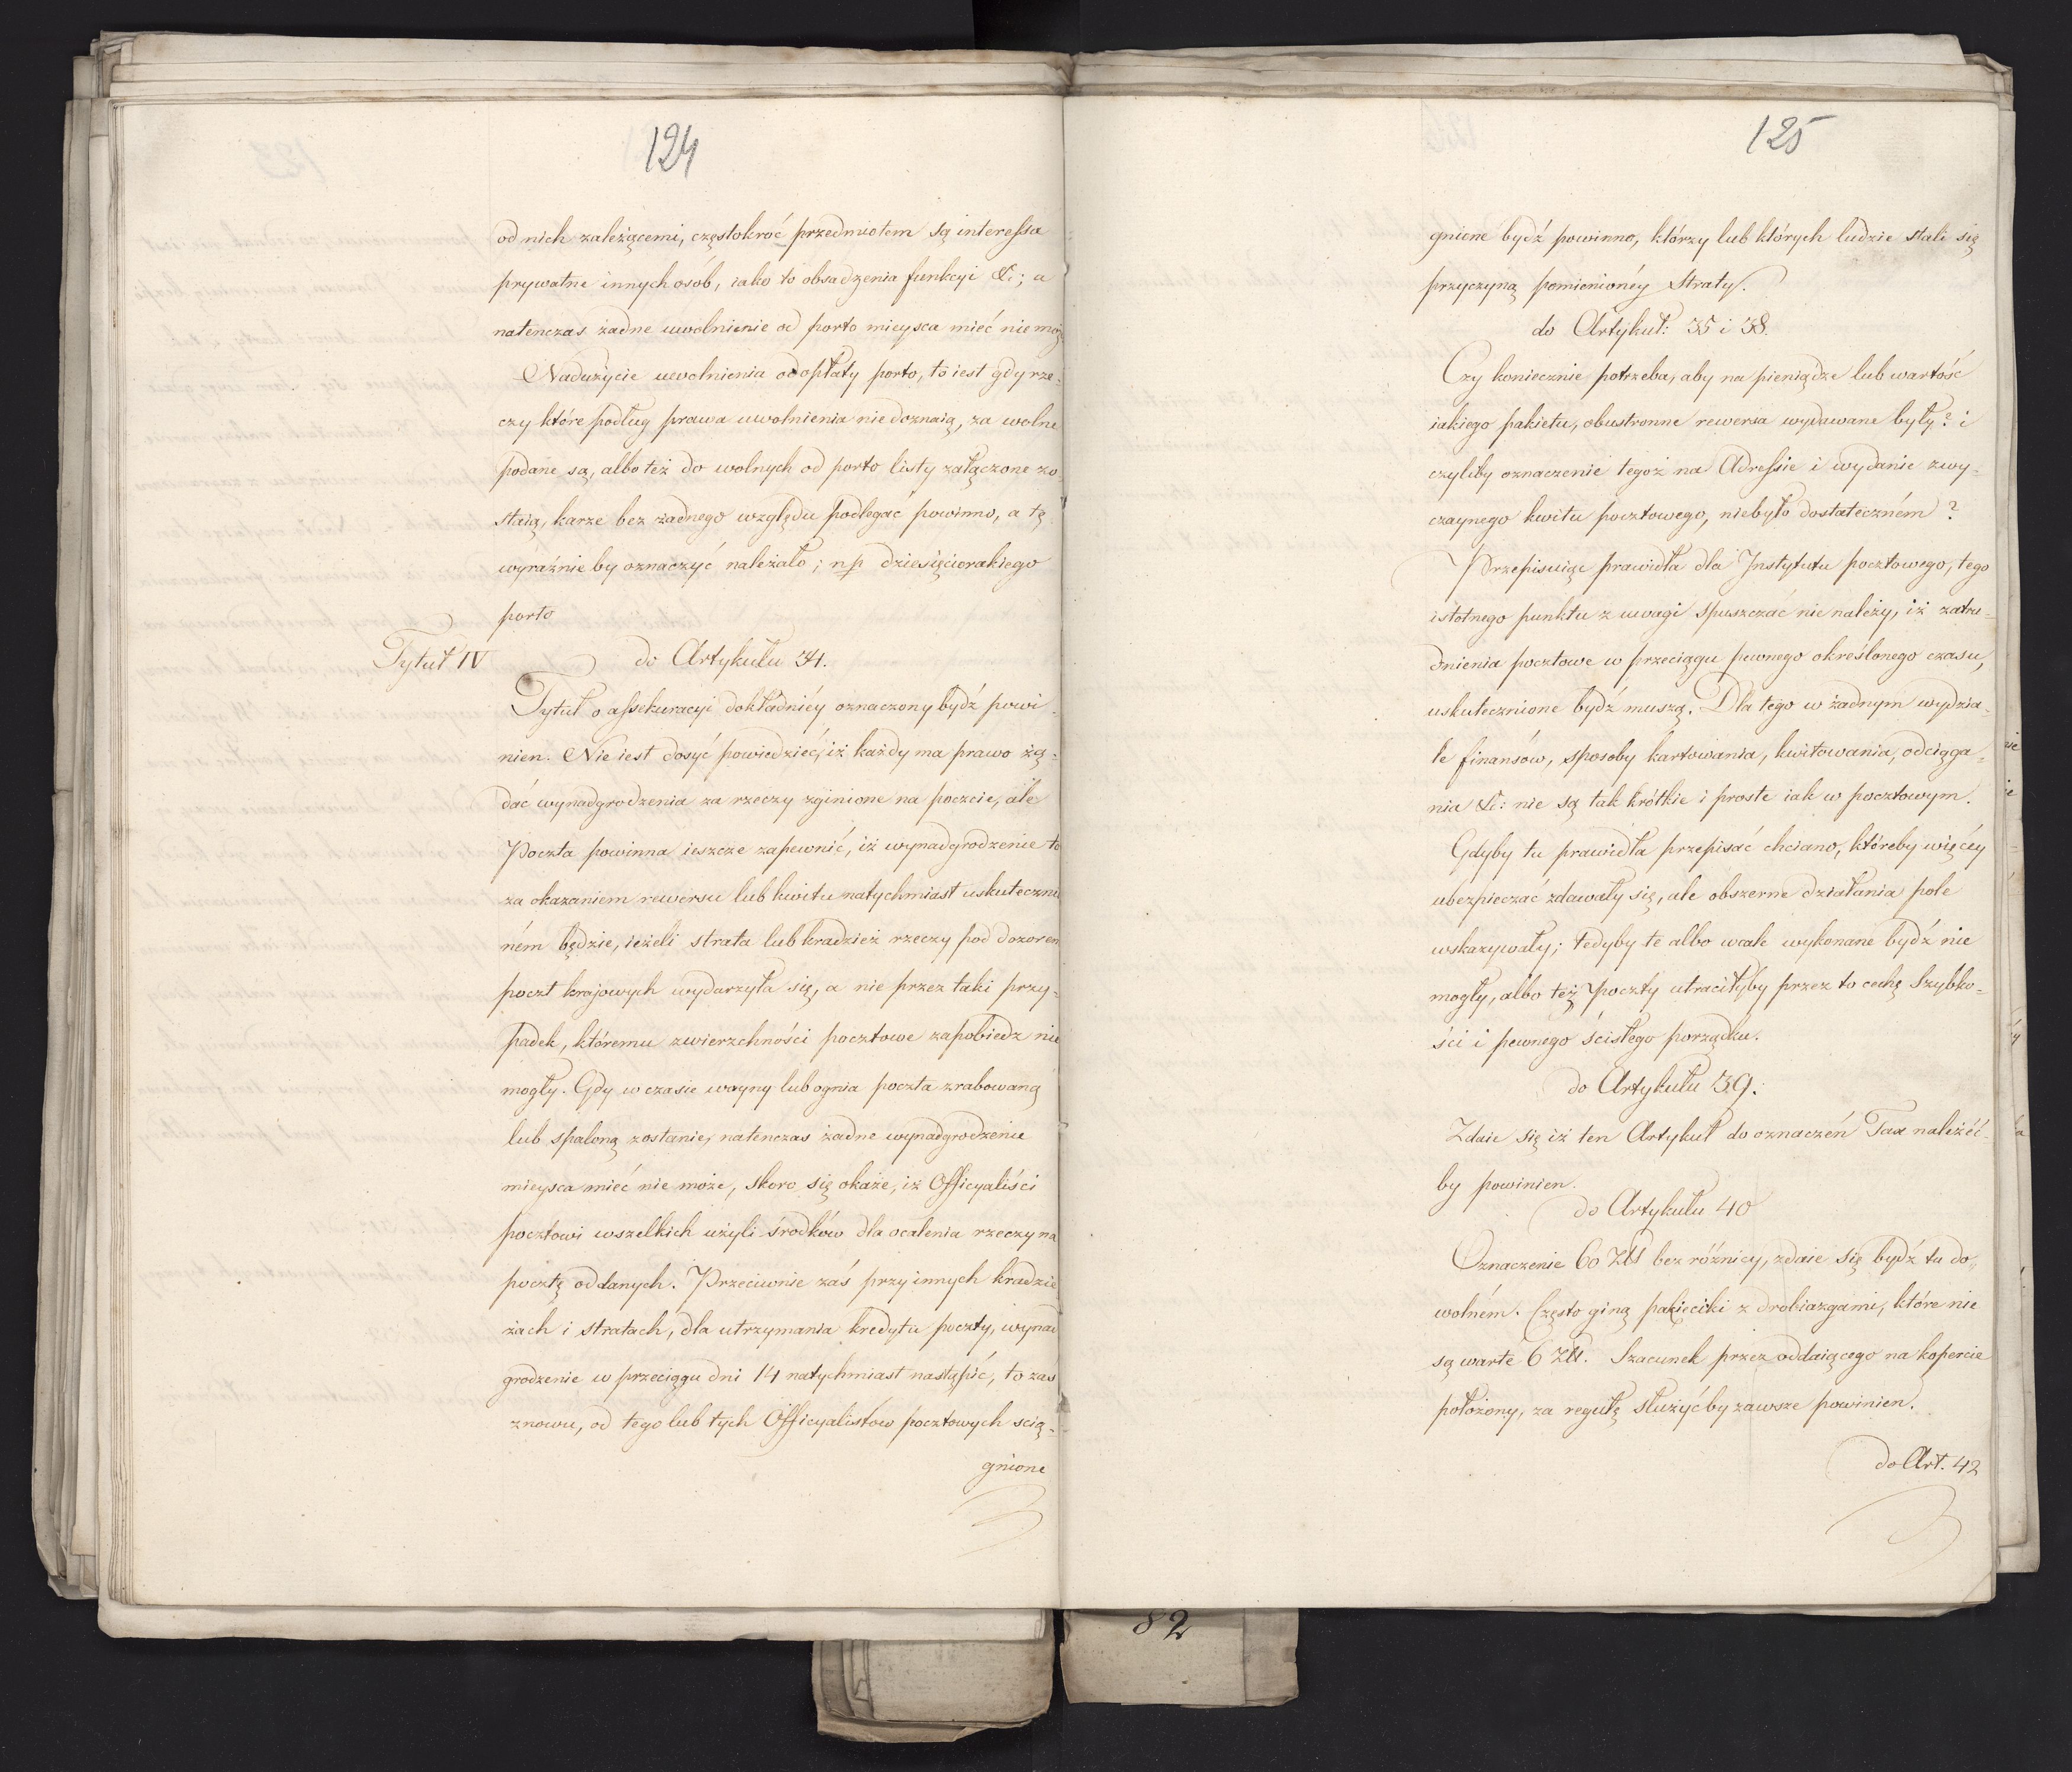 124
od nich zależącemi, częstokroć przedmiotem są interessa
prywatne innych osób, iako to obsadzenia funkcyi &c; a
natenczas żadne uwolnienie od porto mieysca mieć nie mogą
Nadużycie uwolnienia od opłaty porto, to iest gdy rze-
czy które podług prawa uwolnienia nie doznaią, za wolne
podane są, albo też do wolnych od porto listy załączone zo-
staią, karze bez żadnego względu podlegać powinno, a tę
wyraźnie by oznaczyć należało; np dziesięciorakiego
porto
Tytuł IV
do Artykułu 34.
Tytuł o assekuracyi dokładniéy oznaczony bydź powi-
nien. Nie iest dosyć powiedzieć, iż każdy ma prawo żą-
dać wynadgrodzenia za rzeczy zginione na poczcie, ale
Poczta powinna ieszcze zapewnić, iż wynadgrodzenie to
za okazaniem rewersu lub kwitu natychmiast uskutecznio
ném będzie, ieżeli strata lub kradzież rzeczy pod dozorem
poczt krajowych wydarzyła się, a nie przez taki przy-
padek, któremu zwierzchności pocztowe zapobiedz nie
mogły. Gdy w czasie woyny lub ognia poczta zrabowaną
lub spaloną zostanie, natenczas żadne wynadgrodzenie
mieysca mieć nie może, skoro się okaże, iż Officyaliści
pocztowi wszelkich użyli środków dla ocalenia rzeczy na
pocztę oddanych. Przeciwnie zaś przy innych kradzie
żach i stratach, dla utrzymania kredytu poczty, wynad
grodzenie w przeciągu dni 14 natychmiast nastąpić, to zaś
znowu, od tego lub tych Officyalistów pocztowych ścią-
gnione
125
gnione bydź powinno, którzy lub których ludzie stali się
przyczyną pomienionéy straty.
do Artykuł: 35 i 38.
Czy koniecznie potrzeba, aby na pieniądze lub wartość
iakiego pakietu, obustronne rewersa wydawane były? i
czyliby oznaczenie tegoż na Adressie i wydanie zwy-
czaynego kwitu pocztowego, niebyło dostateczném?
Przepisuiąc prawidła dla Instytutu pocztowego, tego
istotnego punktu z uwagi spuszczać nie należy, iż zatru-
dnienia pocztowe w przeciągu pewnego określonego czasu,
uskutecznione bydź muszą. Dla tego w żadnym wydzia-
le finansów, sposoby kartowania, kwitowania, odciąga-
nia &c: nie są tak krótkie i proste iak w pocztowym.
Gdyby tu prawidła przepisać chciano, któreby więcéy
ubezpieczać zdawały się, ale obszerne działania pole
wskazywały; tedyby te albo wcale wykonane bydź nie
mogły, albo też Poczty utraciłyby przez to cechę szybko-
ści i pewnego ścisłego porządku.
do Artykułu 39.
Zdaie się iż ten Artykuł do oznaczeń Tax należéć-
by powinien.
do Artykułu 40
Oznaczenie 60 Złł bez różnicy, zdaie się bydź tu do-
wolném. Często giną pakieciki z drobiazgami, które nie
są warte 6 Złł. Szacunek przez oddaiącego na kopercie
położony, za regułę służyć by zawsze powinien.
do Art. 42
82